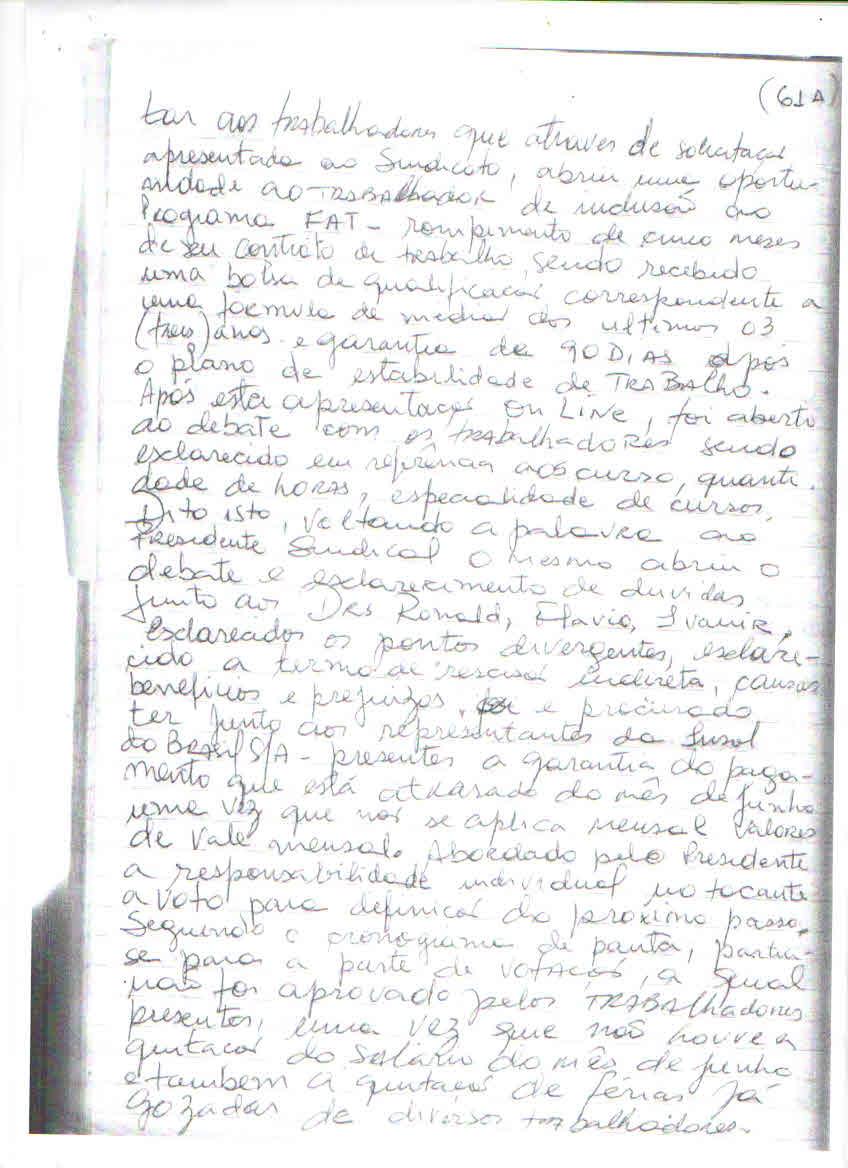 (61A)
tar aos trabalhadores que atraves de solicitaçaõ
apresentada ao Sindicato, abriu uma oportu-
nidade ao TRABAlhadoR de inclusaõ ao
Programa FAT - rompimento de cinco meses
de seu contrato de trabalho, sendo recebido
uma bolsa de qualificaçaõ correspondente a
uma formula de media dos ultimos 03
(treis) anos e garantia de 90 DiAs após
o plano de estabilidade de TRABAlho.
Após esta apresentaçaõ On Line, foi aberto
ao debate com os TRABAlhadoRes sendo
esclarecido em refrência aos curso, quanti
dade de horas, especialidade de cursos.
Dito isto, Voltando a palavra ao
Presidente Sindical o mesmo abriu o
debate e esclarecimento de duvidas
junto aos DRs Ronald, Flavio, Ivanir,
Esclarecidos os pontos divergentes, esclare-
cido a termo de rescisaõ indireta, causas
beneficios e prejuizos, e procurado
ter junto aos representantes da
do BRasil S/A - presentes a garantia do paga-
mento que está atrasado do mês de junho
uma vez que naõ se aplica mensal valores
de Vale mensal. Abordado pelo Presidente
a responsabilidade individual no tocante
a voto para definicaõ do proximo passo,
Seguindo o cronograma de pauta, partiu-
se para a parte de votaçaõ, a qual
naõ foi aprovado pelos TRABAlhadores
presentes, uma vez que naõ houve a
quitacaõ do Salário do mês de junho
e tambem a quitaçaõ de férias já
gozadas de diversos trabalhadores.